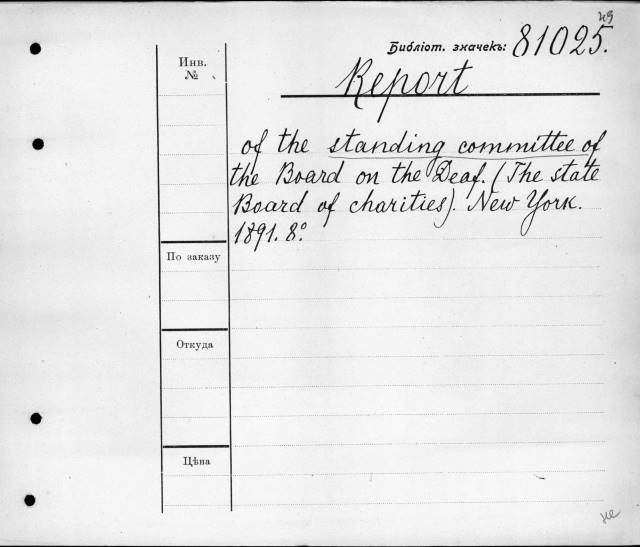 49
Библіот. значекъ: 81025.
Инв.
№
Report
of the standing committee of
the Board on the Deaf. (The state
Board of charities). New York.
1891. 8º.
По заказу
Откуда
Цѣна